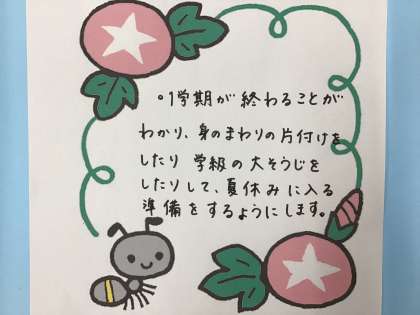 •1学期が終わることが
わかり、身のまわりの片付けを
したり 学級の大そうじを
したりして、夏休みに入る
準備をするようにします。